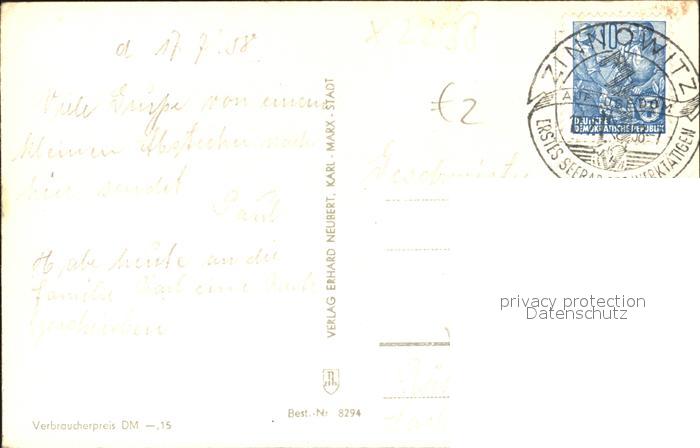 d 17.7.58
Viele Grüße von einem
kleinen Abstecher nach
hier sendet
Paul
Habe heute an die
Familie Karl eine Karte
geschrieben
VERLAG ERHARD NEUBERT, KARL-MARX-STADT
Best.-Nr 8294
Verbraucherpreis DM —,15
€2
Geschwister
10
DEUTSCHE
DEMOKRATISCHE REPUBLIK
ZINNOWITZ
AUF USEDOM
ERSTES SEEBAD DER WERKTÄTIGEN
privacy protection
Datenschutz